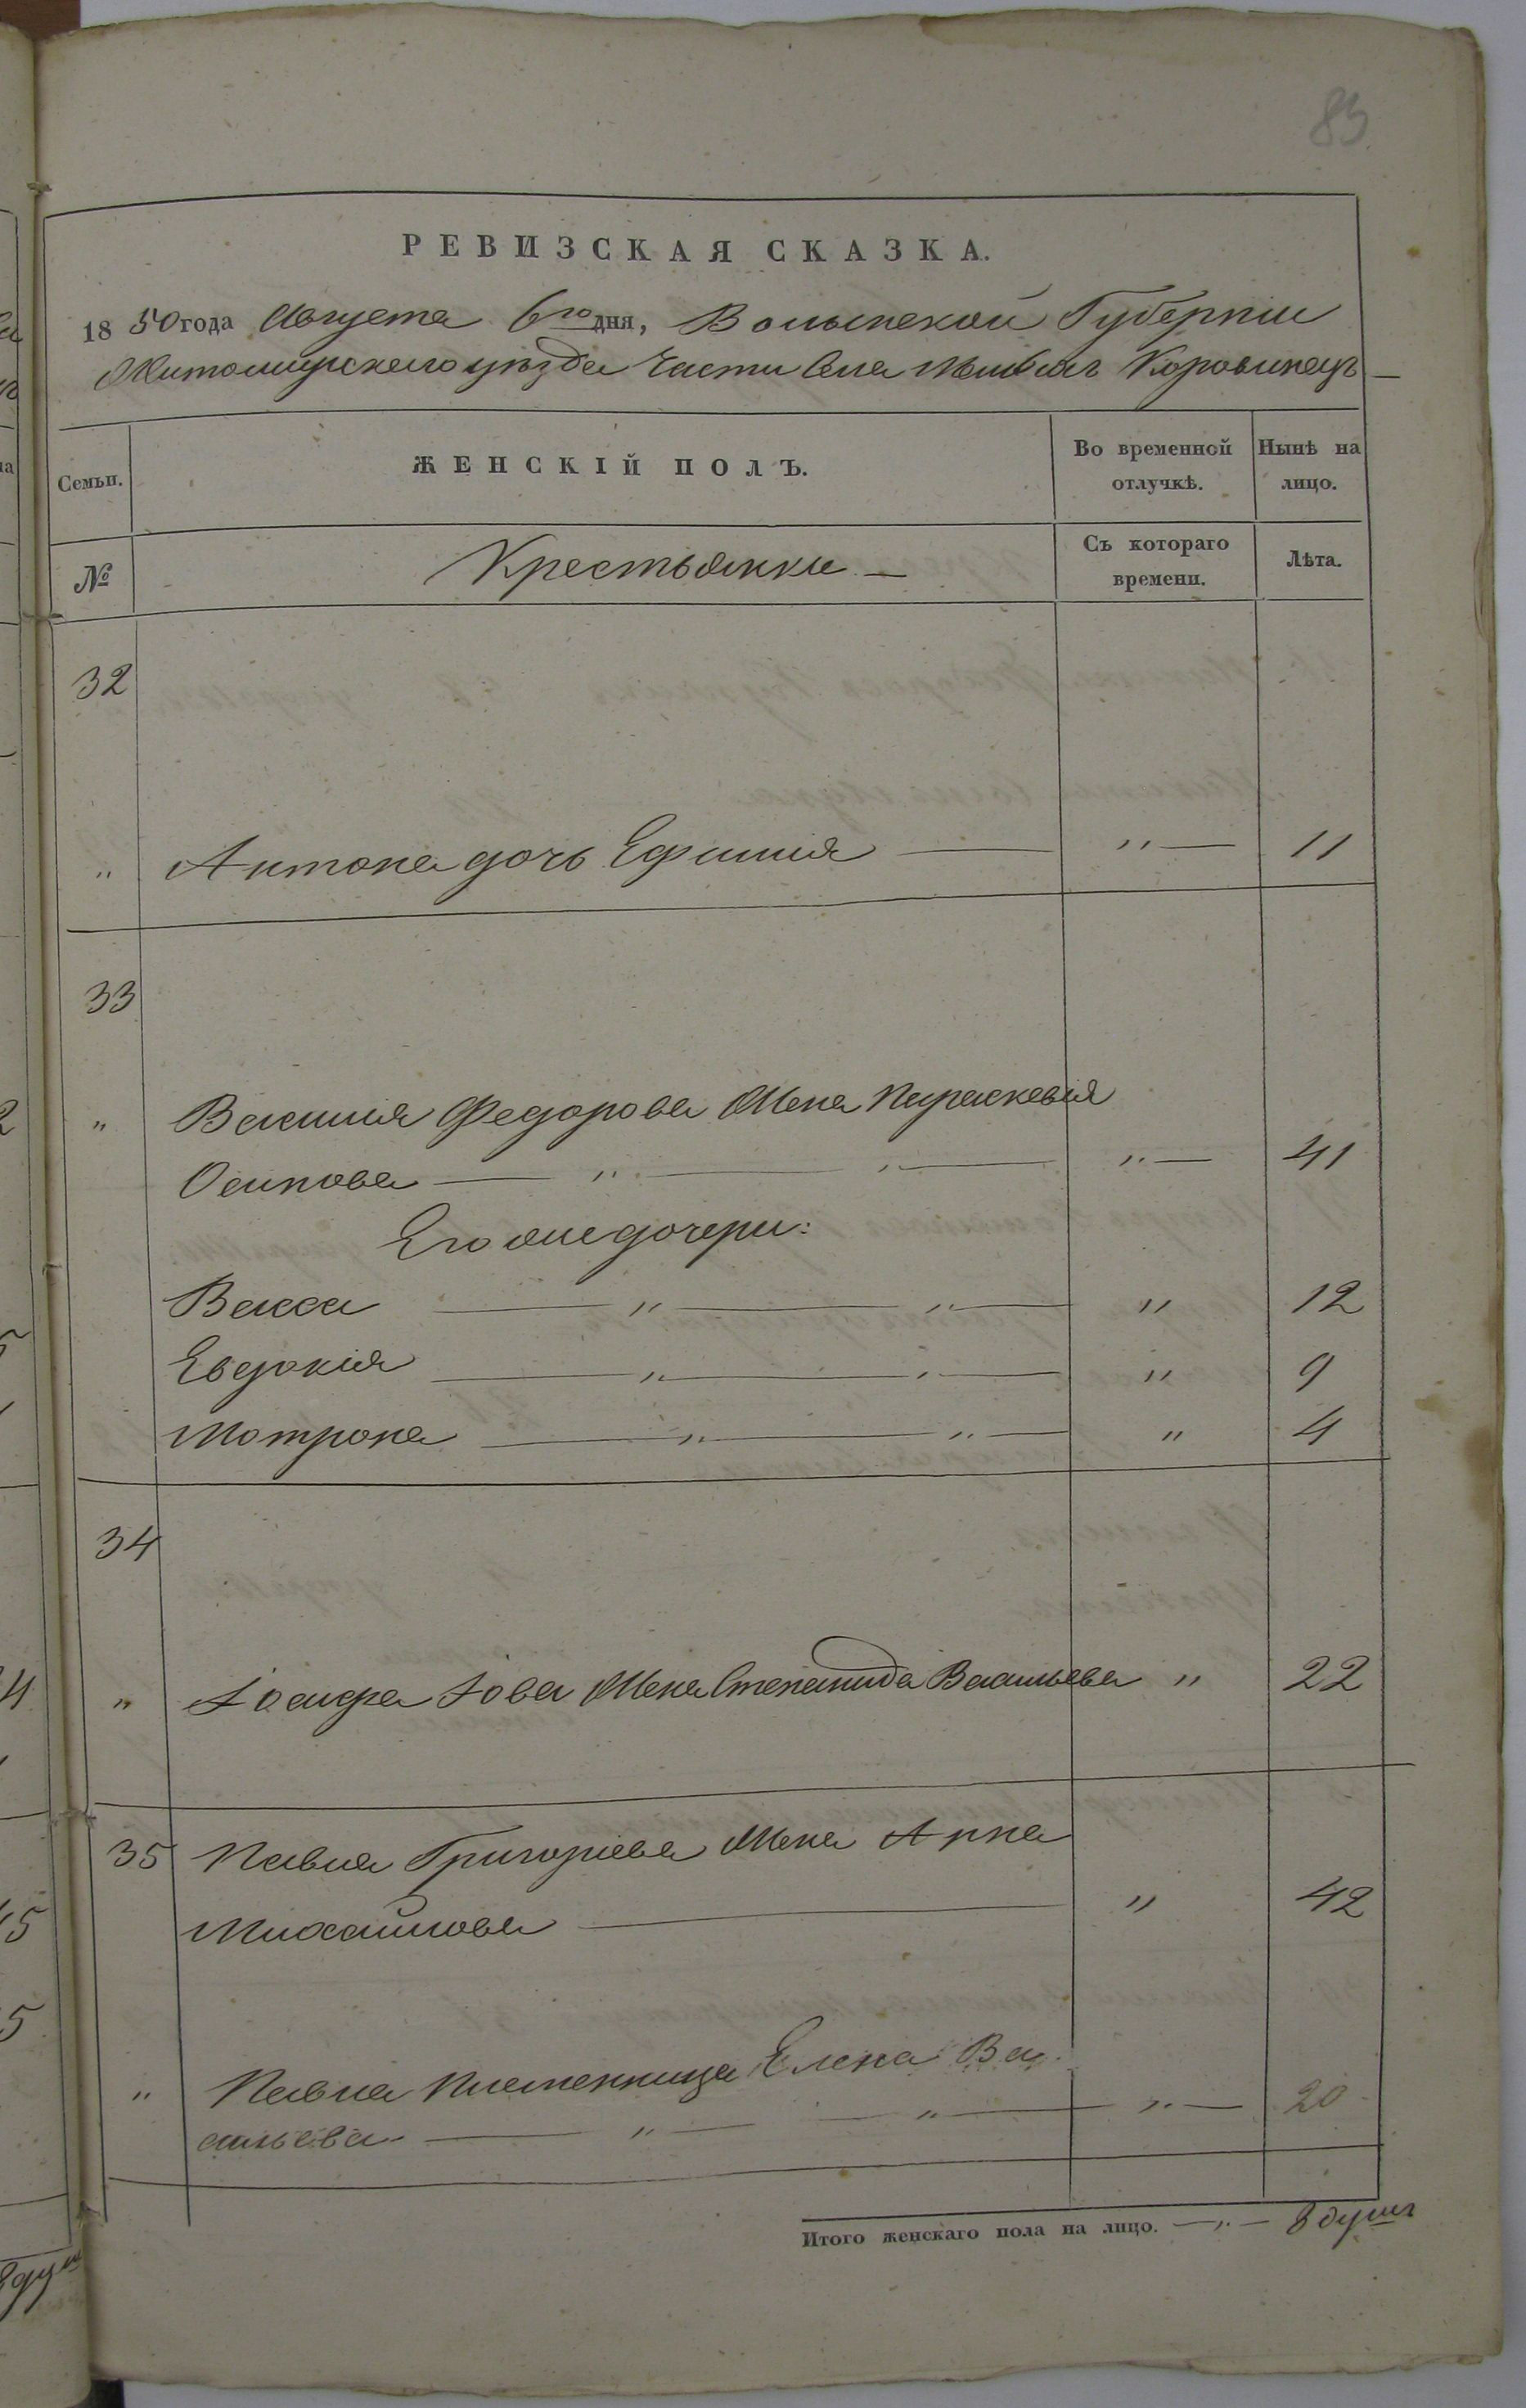 83
РЕВИЗСКАЯ СКАЗКА.
1850 года Августа 6го дня, Волынской Губерніи
Житомирского уѣзда Части Села Малыхъ Коровинецъ
Семьи. ЖЕНСКІЙ ПОЛЪ. Во временной отлучкѣ. Нынѣ на лицо.
№ Крестьянки Съ котораго времени. Лѣта.
32
" Антона дочь Ефимия " 11
33
" Василия Федорова Жена Параскевия
Осипова " " " 41
Его же дочери:
Васса " " " 12
Евдокия " " " 9
Мотрона " " " 4
34
" Іосифа Іова Жена Степанида Васильева " 22
35 Павла Григоріева Жена Анна
Михайлова " 42
" Павла племенница Елена Ва
сильева " " " 20
Итого женскаго пола на лицо. " 8 душъ